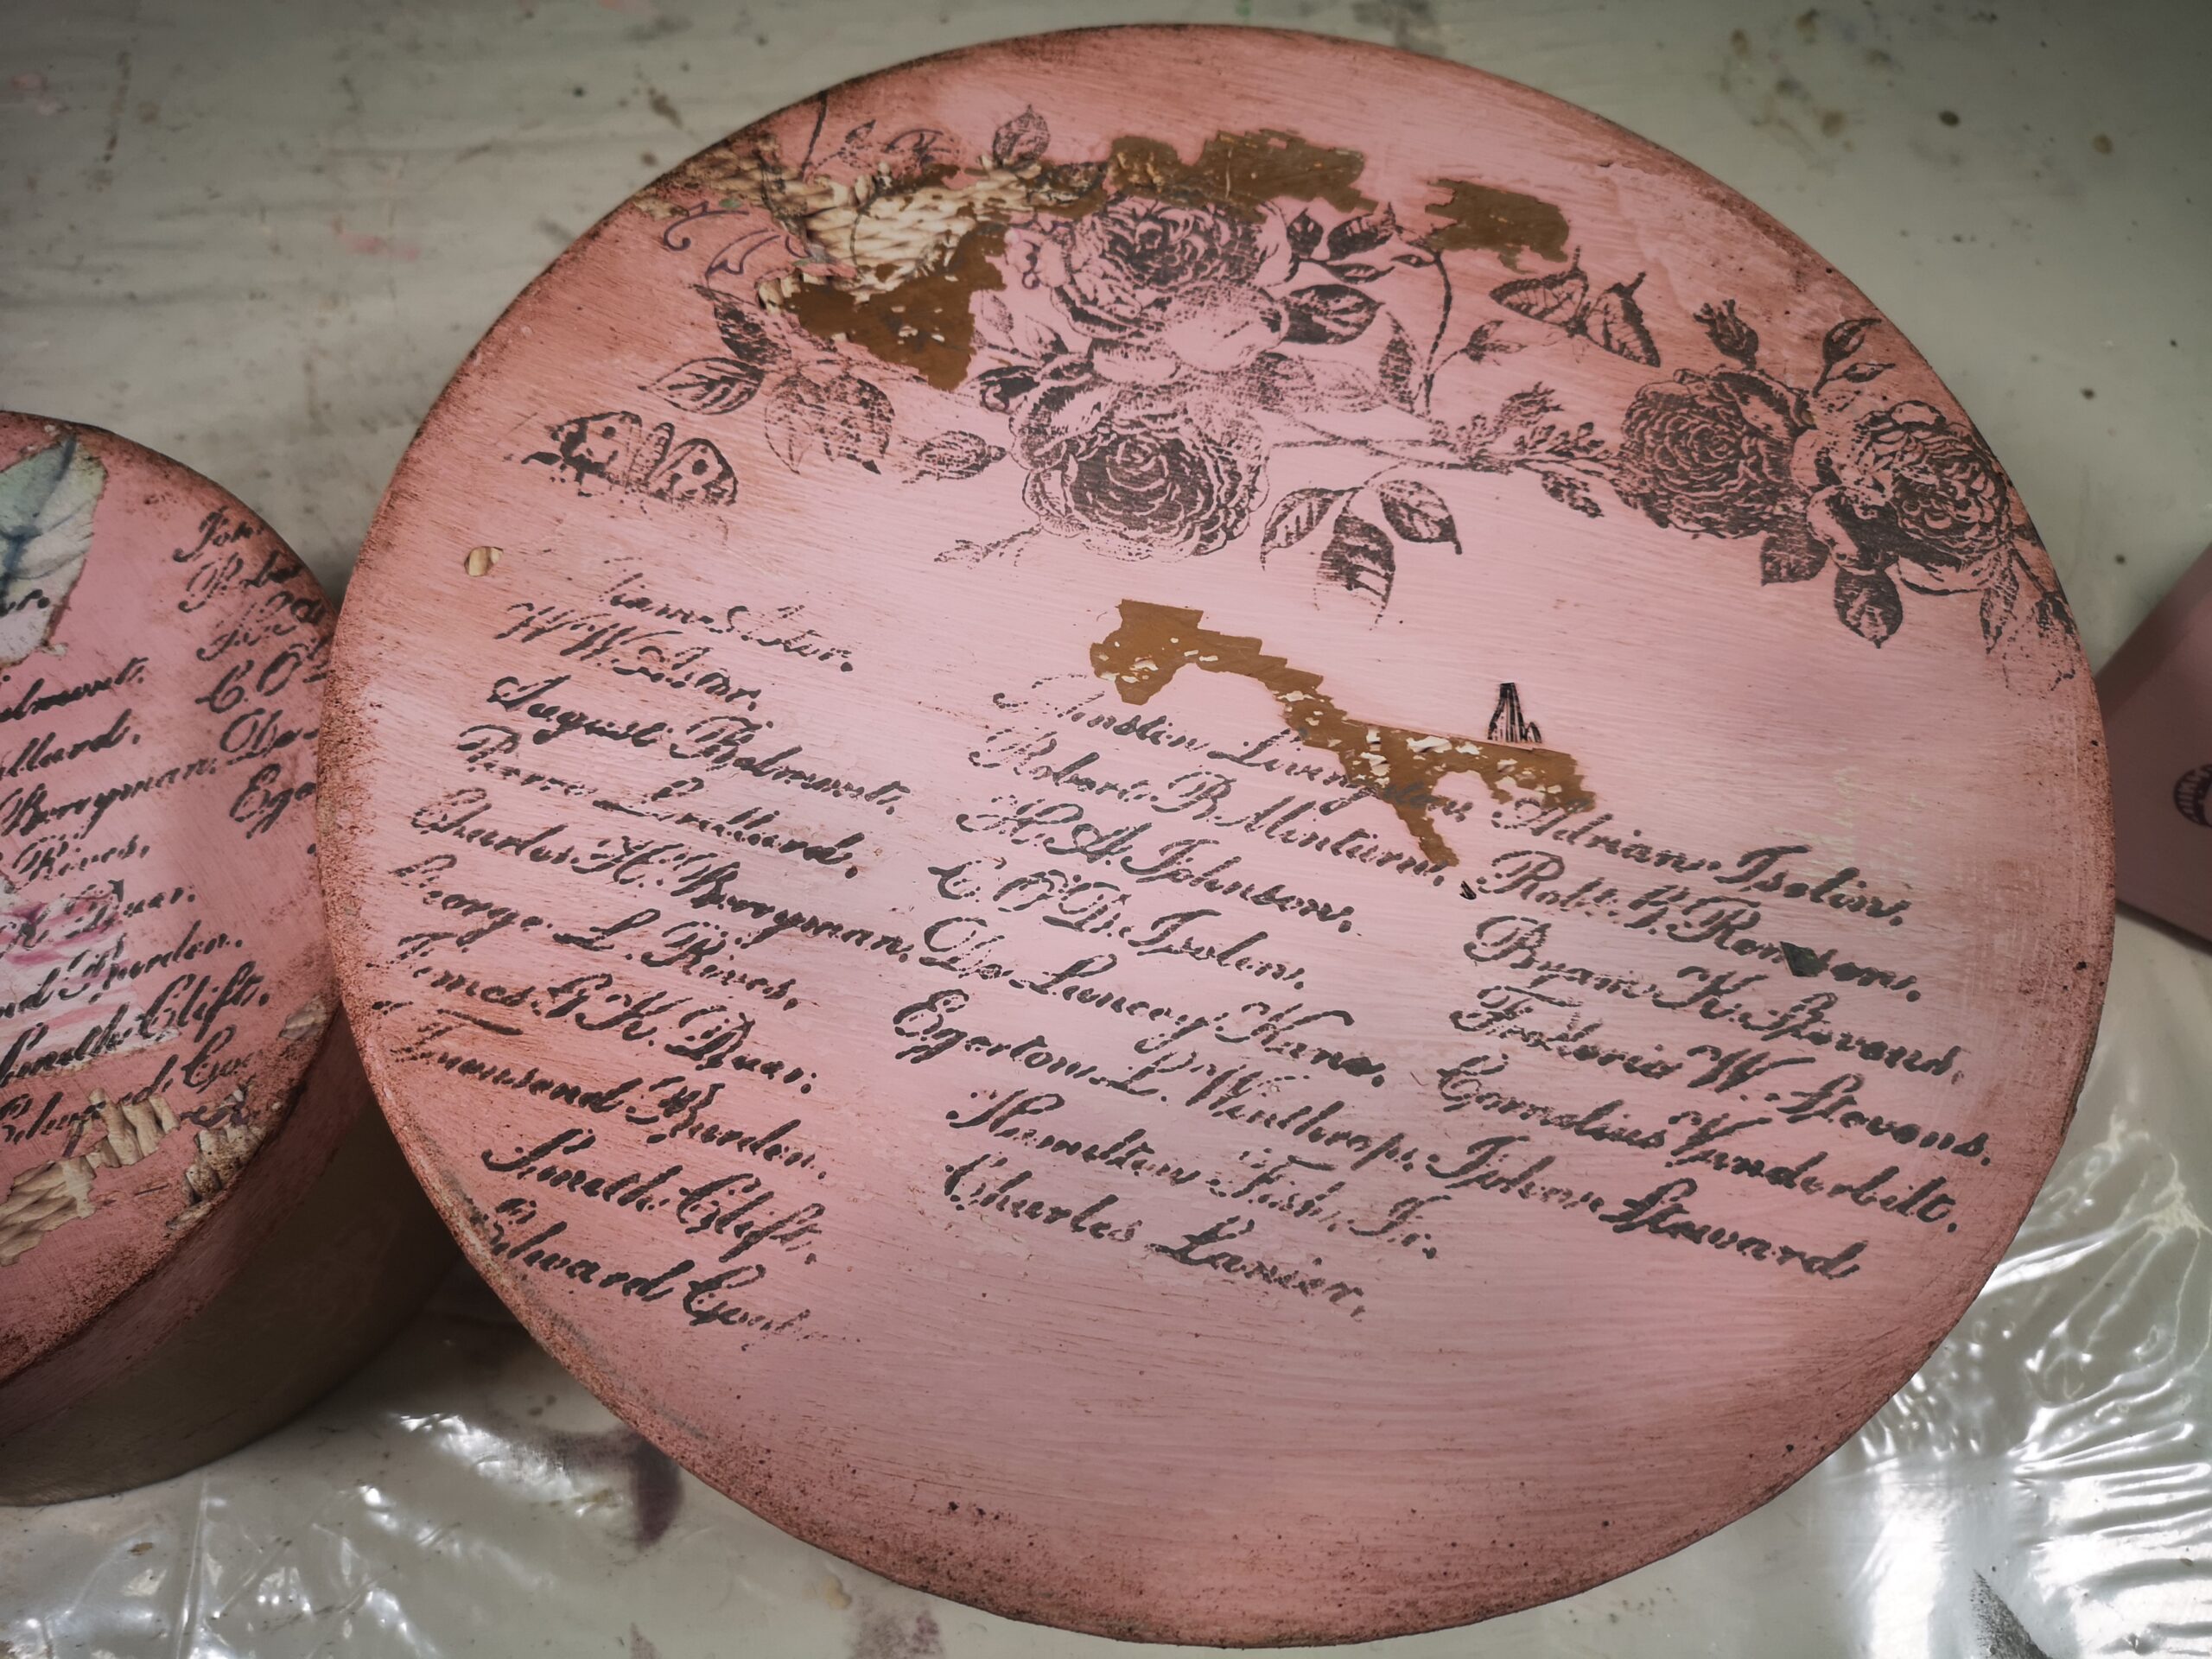 Astor.
W. W. Astor.
August Belmont.
Pierre Lorillard.
Charles H. Berryman.
George L. Rives.
James G. K. Duer.
Townsend Burden.
Smith Clift.
Edward
Livingston.
Robert B. Minturn.
H. A. Johnson.
C. O'D. Iselin.
De Lancey Kane.
Egerton L. Winthrop.
Hamilton Fish. Jr.
Charles Lanier.
Adrian Iselin.
Robt. G. Remsen.
Byam K. Stevens.
Frederic W. Stevens.
Cornelius Vanderbilt.
John Steward
elmont.
llard.
Berryman.
Rives.
K. Duer.
nd Burden.
Smith Clift.
Edward
C. O'
De
Ege